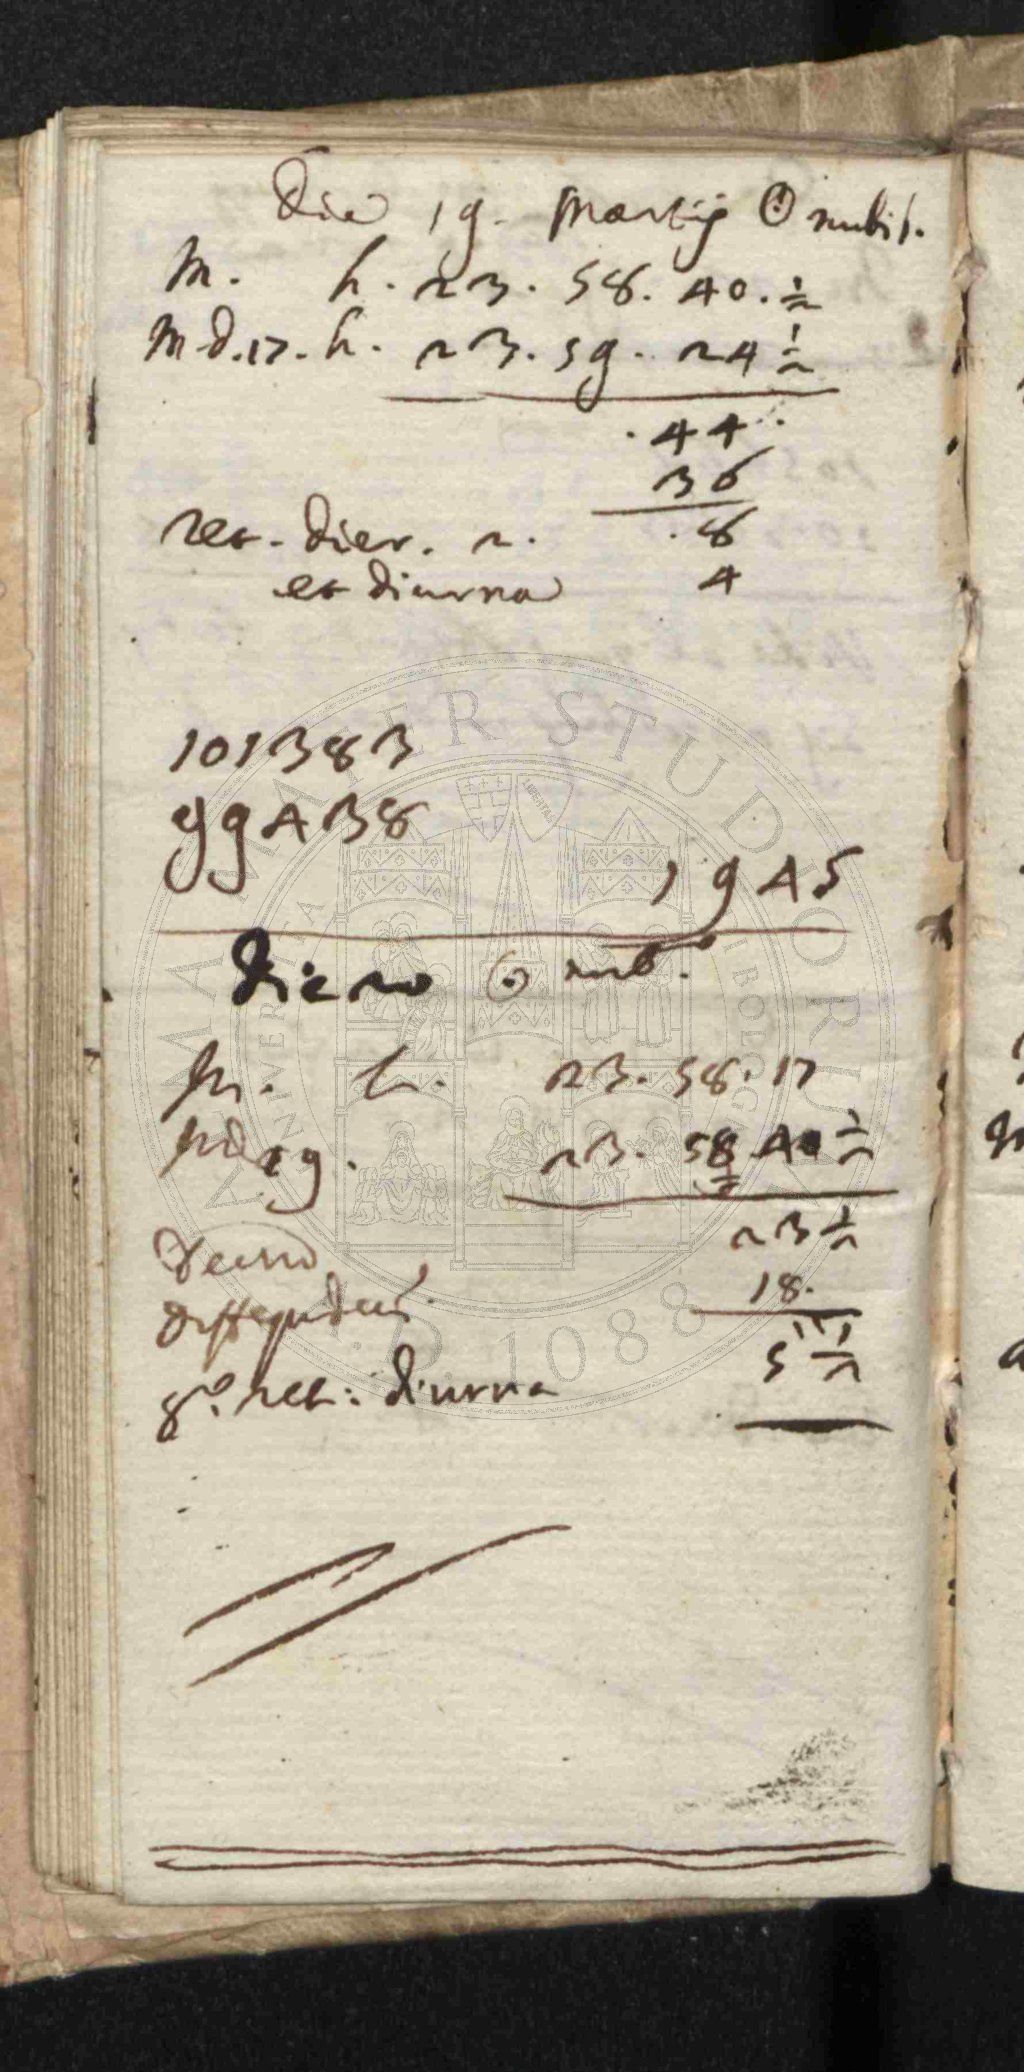 Die 19. Martij ☉ nubib.
M. h. 23. 58. 40. ½
M.d.17. h. 23. 59. 24 ½
44
36
ret. dier. 2. 8
et diurna 4
101383
99438
1945
Die 20 ☉ nub.
M. h. 23. 58. 17
Md 19. 23. 58 40 ½
23 ½
18.
5 ½
g.º ret: diurna
ALMA MATER STUDIORUM
A.D. 1088